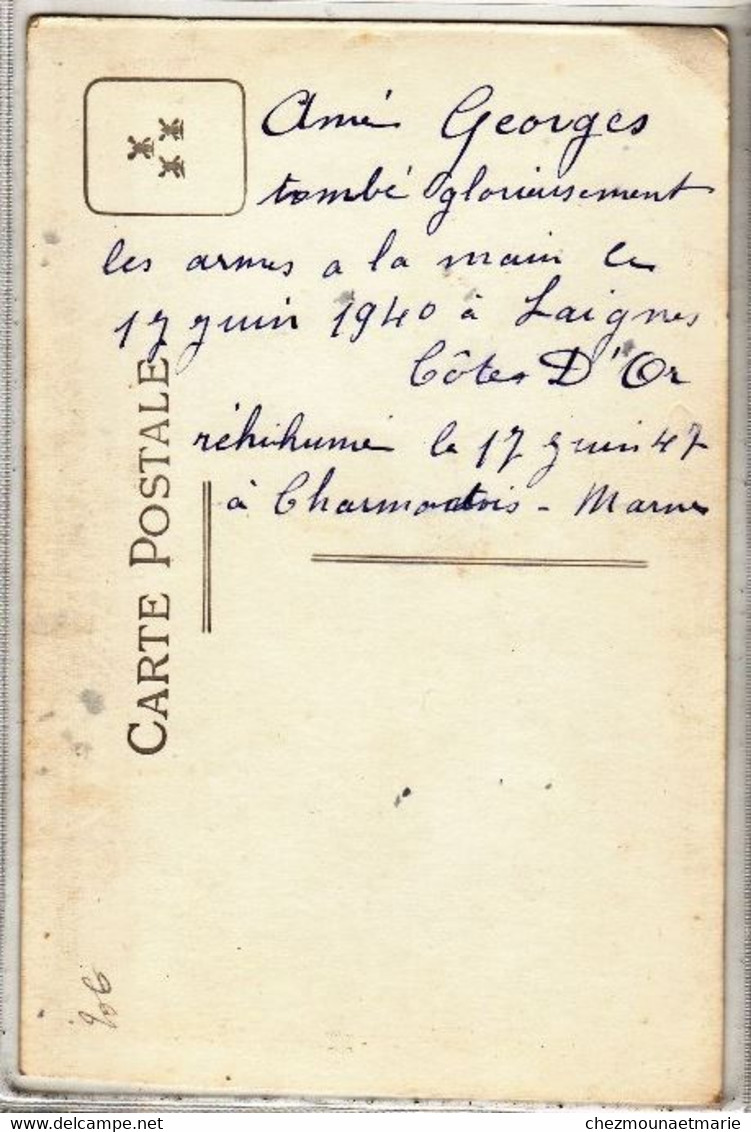 Amé Georges
tombé glorieusement
les armes a la main le
17 juin 1940 à Laignes
Côtes D'Or
réhihumé le 17 juin 47
à Charmontois - Marne
CARTE POSTALE
chezmounaetmarie